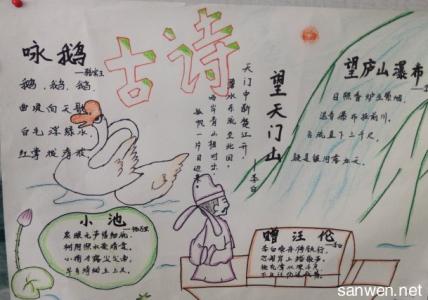 咏鹅
——骆宾王
鹅,鹅,鹅,
曲项向天歌,
白毛浮绿水,
红掌拨清波。
古诗
望天门山
——李白
天门中断楚江开,
碧水东流至此回。
两岸青山相对出,
孤帆一片日边来
望庐山瀑布
日照香炉生紫烟,
遥看瀑布挂前川。
飞流直下三千尺,
疑是银河落九天。
小池
杨万里
泉眼无声惜细流,
树阴照水爱晴柔。
小荷才露尖尖角,
早有蜻蜓立上头。
赠汪伦
李白乘舟将欲行,
忽闻岸上踏歌声。
桃花潭水深千尺
sanwen.net